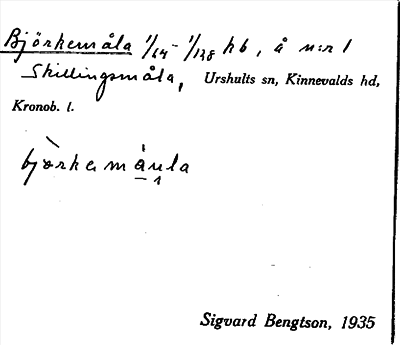 Björkemåla 1/64 - 1/128 hb, å n:r 1
Skillingsmåla, Urshults sn, Kinnevalds hd,
Kronob. l.
bjòrkemåula
Sigvard Bengtson, 1935